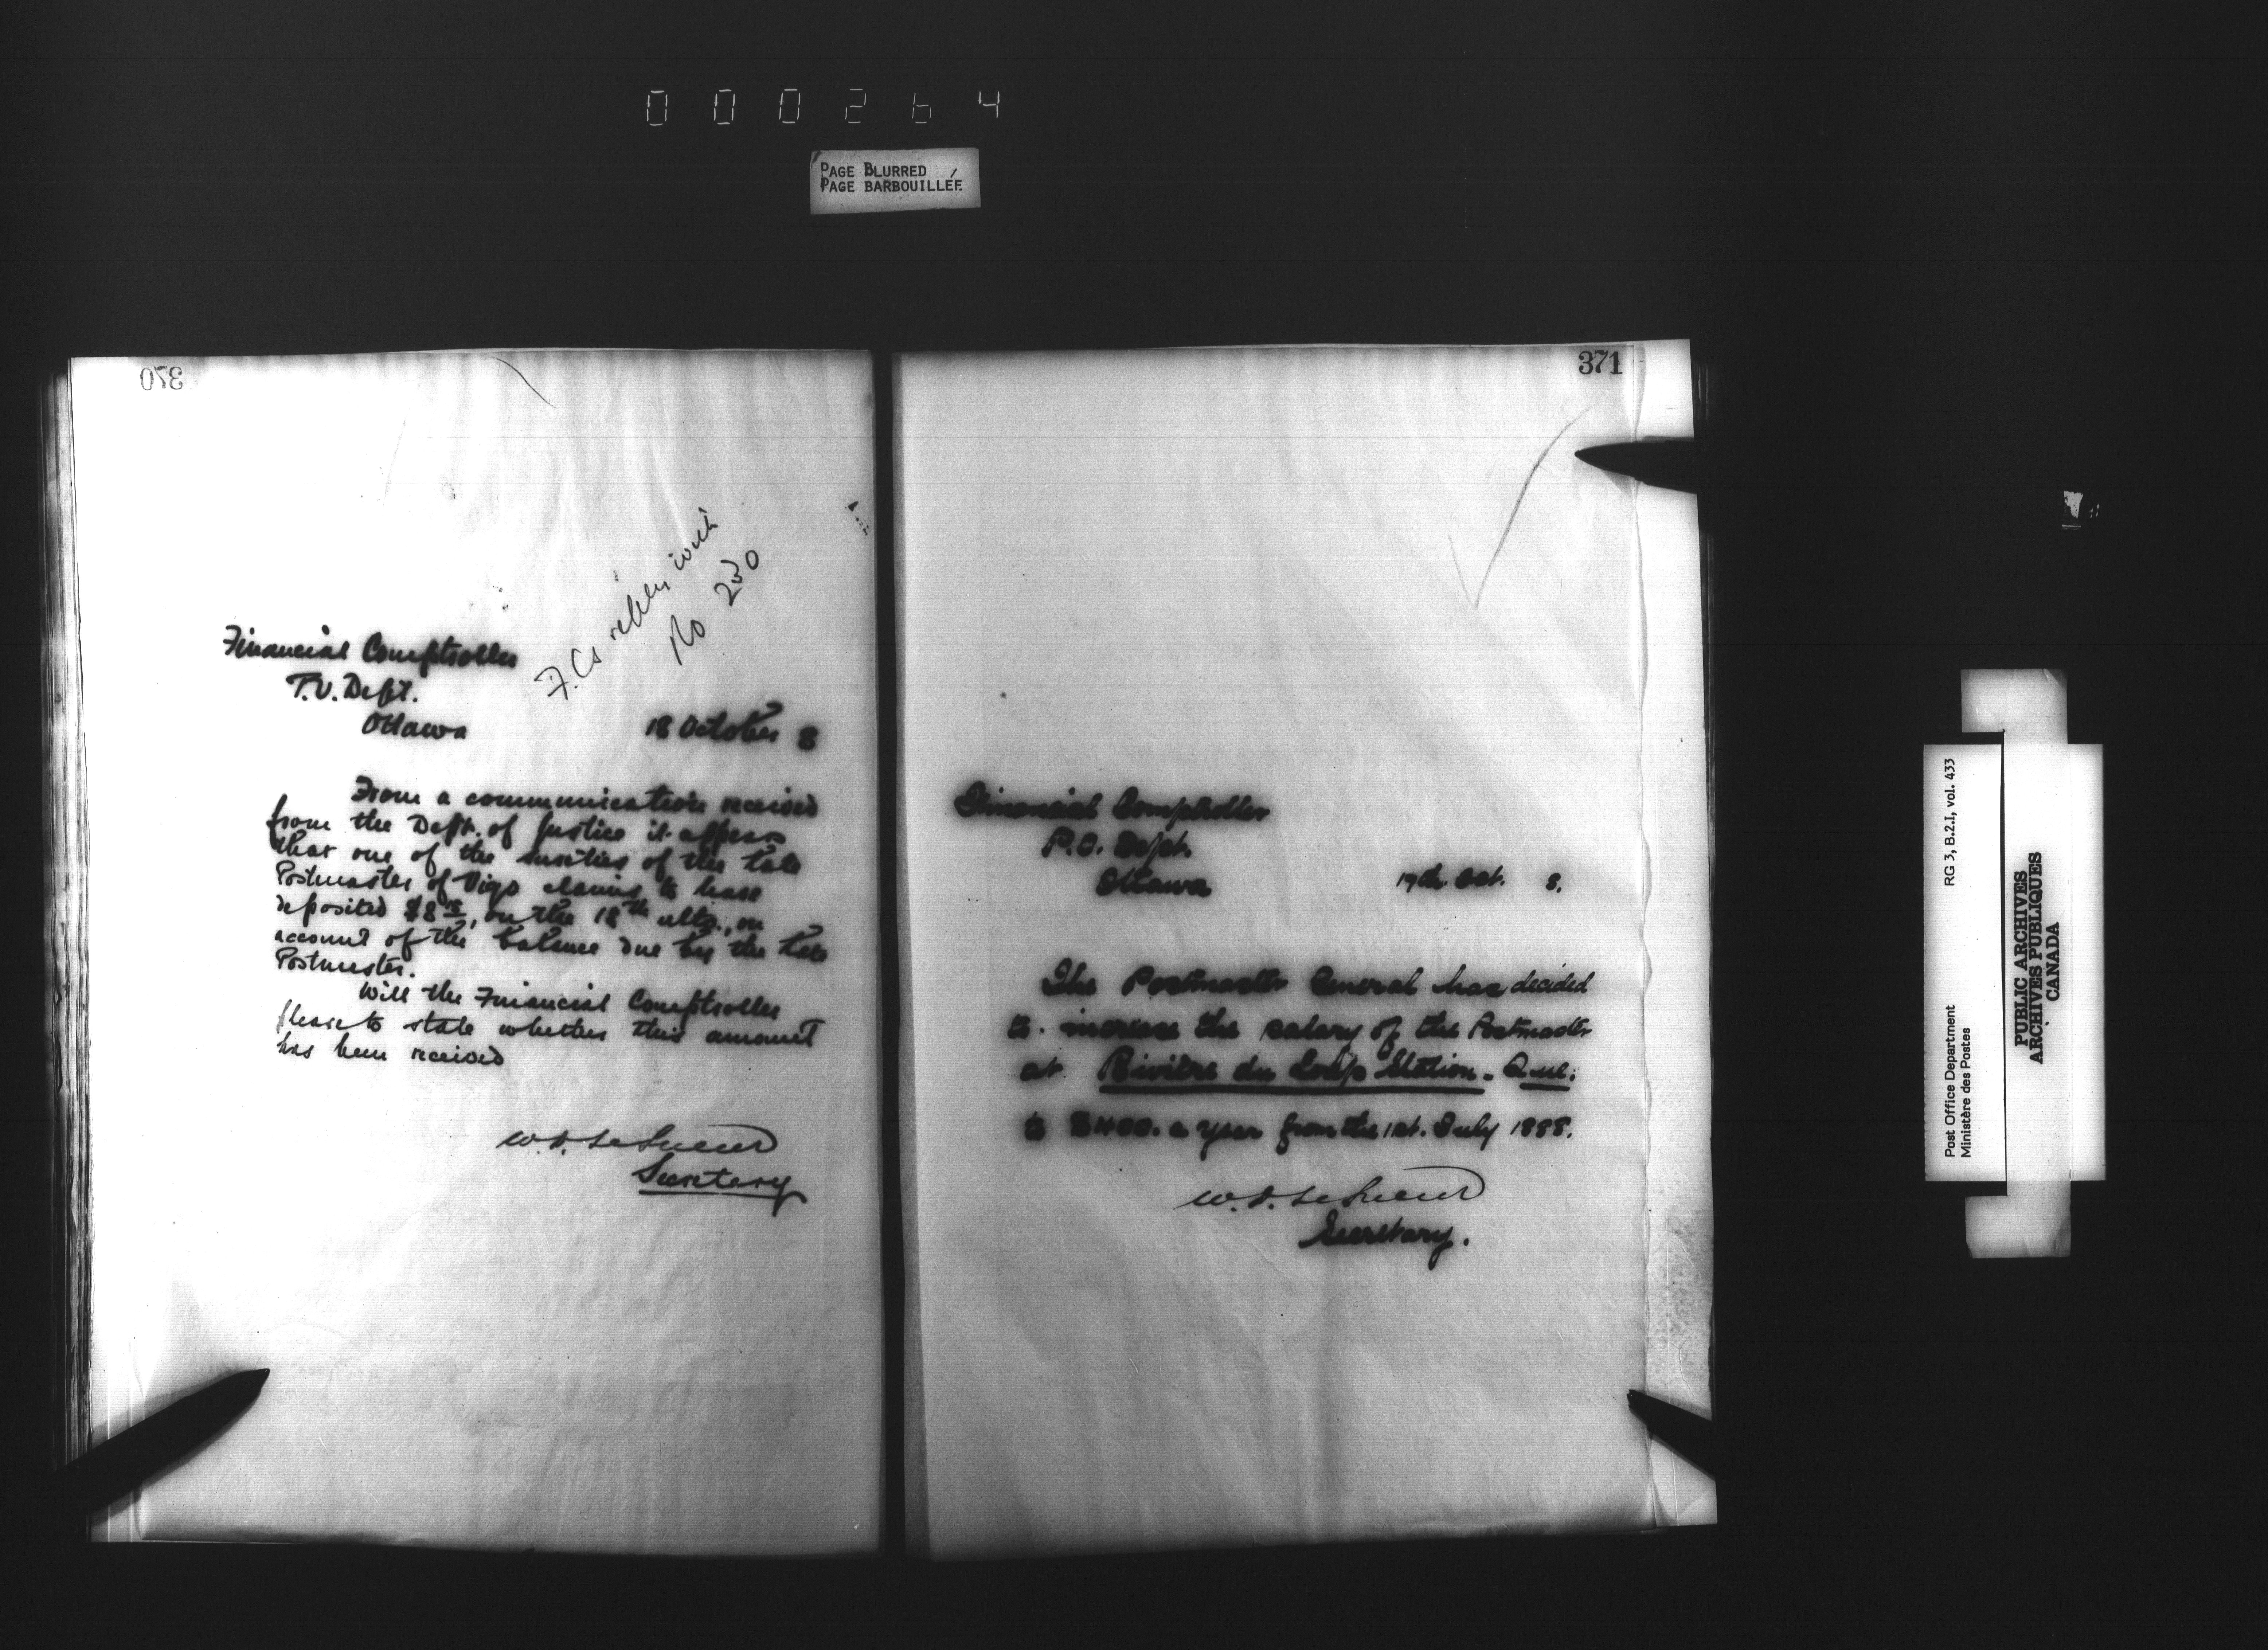 000264
PAGE BLURRED
PAGE BARBOUILLÉE
370
F.Cs reply with
No 230
Financial Comptroller
P.O. Dept.
Ottawa
18 October 8
From a communication received
from the Dept. of Justice it appears
that one of the sureties of the late
Postmaster of Vigo claims to have
deposited on the 18th ulto., on
account of the balance due by the late
Postmaster.
Will the Financial Comptroller
please to state whether this amount
has been received
W.D. LeSueur
Secretary
371
Financial Comptroller
P.O. Dept.
Ottawa
19th Oct. 8.
The Postmaster General has decided
to increase the salary of the Postmaster
at Rivière du Loup Station. Que.
to $400. a year from the 1st. July 1888.
W.D. LeSueur
Secretary.
Post Office Department
Ministère des Postes
RG 3, B.2.I, vol. 433
PUBLIC ARCHIVES
ARCHIVES PUBLIQUES
CANADA